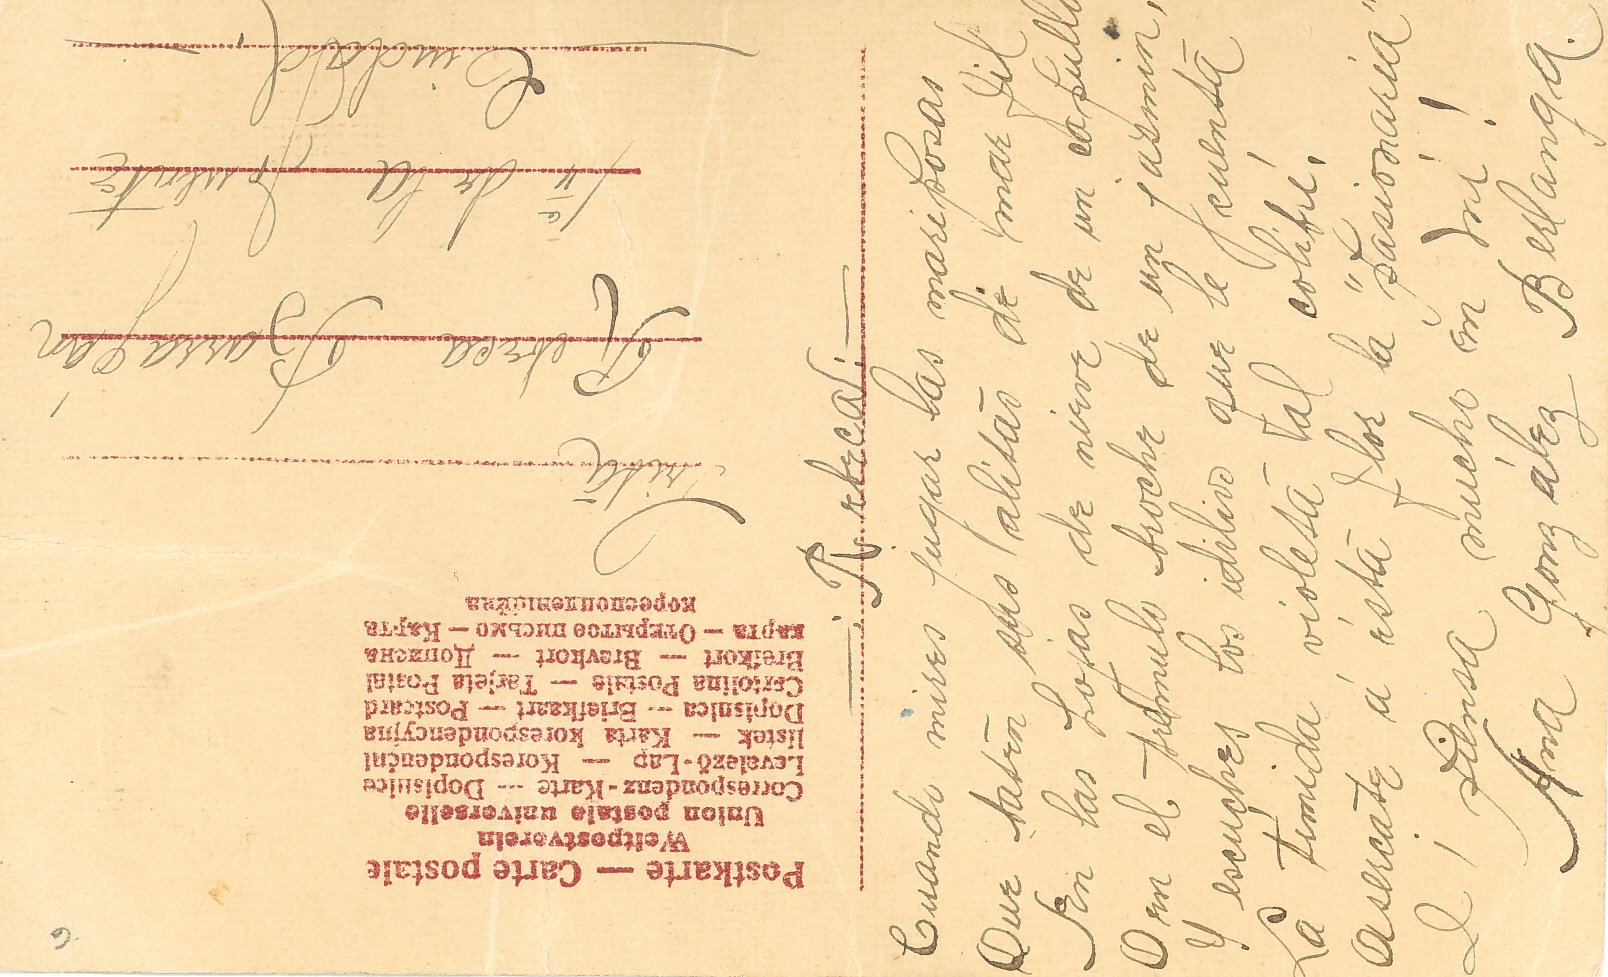 Postkarte — Carte postale
Weltpostverein
Union postale universelle
Correspondenz-Karte — Dopisnice
Levelező-Lap — Korespondenční
lístek — Karta korespondencyjna
Dopisnica — Briefkaart — Postcard
Cartolina Postale — Tarjeta Postal
Brefkort — Brevkort — Дописна
карта — Открытое письмо — Карта
кореспонденційна
Srita
Rebeca Barragán
de la Fuente
Ciudad.
Rebeca!
Cuando mires jugar las mariposas
Que baten sus alitas de mar fil
En las hojas de nieve de un capullo
O en el trémulo broche de un jazmin,
Y escuches los idilios que le cuenta
La tímida violeta tal colibrí,
Asercate á ésta flor la "Pasionaria"
I piensa mucho en mi!
Ana González Berlanga.